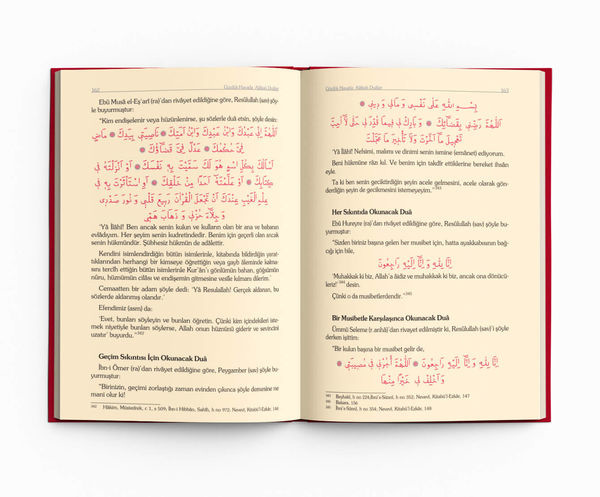 362
Günlük Hayatla Alâkalı Dualar
Ebû Musâ el-Eş'arî (ra)'dan rivâyet edildiğine göre, Resûlullah (sav) şöy-
le buyurmuştur:
"Kim endişelenir veya hüzünlenirse, şu sözlerle duâ etsin, şöyle desin:
اَللّٰهُمَّ اِنِّي عَبْدُكَ وَابْنُ عَبْدِكَ وَابْنُ اَمَتِكَ ❁ نَاصِيَتِي بِيَدِكَ ❁ مَاضٍ
فِيَّ حُكْمُكَ ❁ عَدْلٌ فِيَّ قَضَاؤُكَ ❁
اَسْأَلُكَ بِكُلِّ اسْمٍ هُوَ لَكَ سَمَّيْتَ بِهِ نَفْسَكَ ❁ اَوْ اَنْزَلْتَهُ فِي
كِتَابِكَ ❁ اَوْ عَلَّمْتَهُ اَحَدًا مِنْ خَلْقِكَ ❁ اَوِ اسْتَأْثَرْتَ بِهِ فِي
عِلْمِ الْغَيْبِ عِنْدَكَ اَنْ تَجْعَلَ الْقُرْاٰنَ رَبِيعَ قَلْبِي وَ نُورَ صَدْرِي
وَ جِلَاءَ حُزْنِي وَ ذَهَابَ هَمِّي
'Yâ İlâhî! Ben ancak senin kulun ve kulların olan bir ana ve babanın
evlâdıyım. Her şeyim senin kudretindedir. Benim için geçerli olan ancak
senin hükmündür. Şüphesiz hükmün de adâlettir.
Kendini isimlendirdiğin bütün isimlerinle, kitabında bildirdiğin yarat-
tıklarından herhangi bir kimseye öğrettiğin veya gayb âleminde kalma-
sını tercih ettiğin bütün isimlerinle Kur'ân'ı gönlümün baharı, göğsümün
nûru, hüzmümün cilâsı ve endişemin gitmesine vesîle kılmanı dilerim.'
Cemaatten bir adam şöyle dedi: 'Yâ Resulallah! Gerçek aldanan, bu
sözlerde aldanmış olandır.'
Efendimiz (asm) da:
'Evet, bunları söyleyin ve bunları öğretin. Çünkü kim içindekileri iste-
mek niyetiyle bunları söylerse, Allah onun hüznünü giderir ve sevincini
uzatır' buyurdu."³⁴²
Geçim Sıkıntısı İçin Okunacak Duâ
İbn-i Ömer (ra)'dan rivâyet edildiğine göre, Peygamber (sav) şöyle bu-
yurmuştur:
"Birinizin, geçimi zorlaştığı zaman evinden çıkınca şöyle demesine ne
mani olur ki!
342 Hâkim, Müstedrek, c 1, s 509, İbn-i Hibbân, Sahîh, h no 972. Nevevî, Kitâbü'l-Ezkâr, 146
Günlük Hayatla Alâkalı Dualar
363
بِسْمِ اللّٰهِ عَلٰى نَفْسِي وَ مَالِي وَ دِينِي ❁
اَللّٰهُمَّ رَضِّنِي بِقَضَائِكَ ❁ وَ بَارِكْ لِي فِيمَا قُدِّرَ لِي حَتّٰى لَا اُحِبَّ
تَعْجِيلَ مَا اَخَّرْتَ وَلَا تَأْخِيرَ مَا عَجَّلْتَ
'Yâ İlâhî! Nefsimi, malımı ve dinimi senin ismine (emânet) ediyorum.
Beni hükmüne râzı kıl. Ve benim için takdîr ettiklerine bereket ihsân
eyle.
Ta ki ben senin geciktirdiğin şeyin acele gelmesini, acele olarak gön-
derdiğin şeyin de gecikmesini istemeyeyim."³⁴³
Her Sıkıntıda Okunacak Duâ
Ebû Hureyre (ra)'dan rivâyet edildiğine göre, Resûlullah (sav) şöyle bu-
yurmuştur:
"Sizden biriniz başına gelen her musibet için, hatta ayakkabısının bağ-
cığı için bile,
اِنَّا لِلّٰهِ وَ اِنَّا اِلَيْهِ رَاجِعُونَ
'Muhakkak ki biz, Allah'a âidiz ve muhakkak ki biz, ancak ona dönücü-
leriz!'³⁴⁴ desin.
Çünkü o da musibetlerdendir."³⁴⁵
Bir Musibetle Karşılaşınca Okunacak Duâ
Ümmü Seleme (r.anhâ)'dan rivayet edilmiştir ki, Resûlullah (sav)'i şöyle
derken işittim:
"Bir kulun başına bir musibet gelir de,
اِنَّا لِلّٰهِ وَ اِنَّا اِلَيْهِ رَاجِعُونَ ❁ اَللّٰهُمَّ اْجُرْنِي فِي مُصِيبَتِي ❁
وَ اَخْلِفْ لِي خَيْرًا مِنْهَا
343 Beyhakî, h no 224;İbnü's-Sünnî, h no 352; Nevevî, Kitâbü'l-Ezkâr, 147
344 Bakara, 156
345 İbnü's-Sünnî, h no 354; Nevevî, Kitâbü'l-Ezkâr, 148